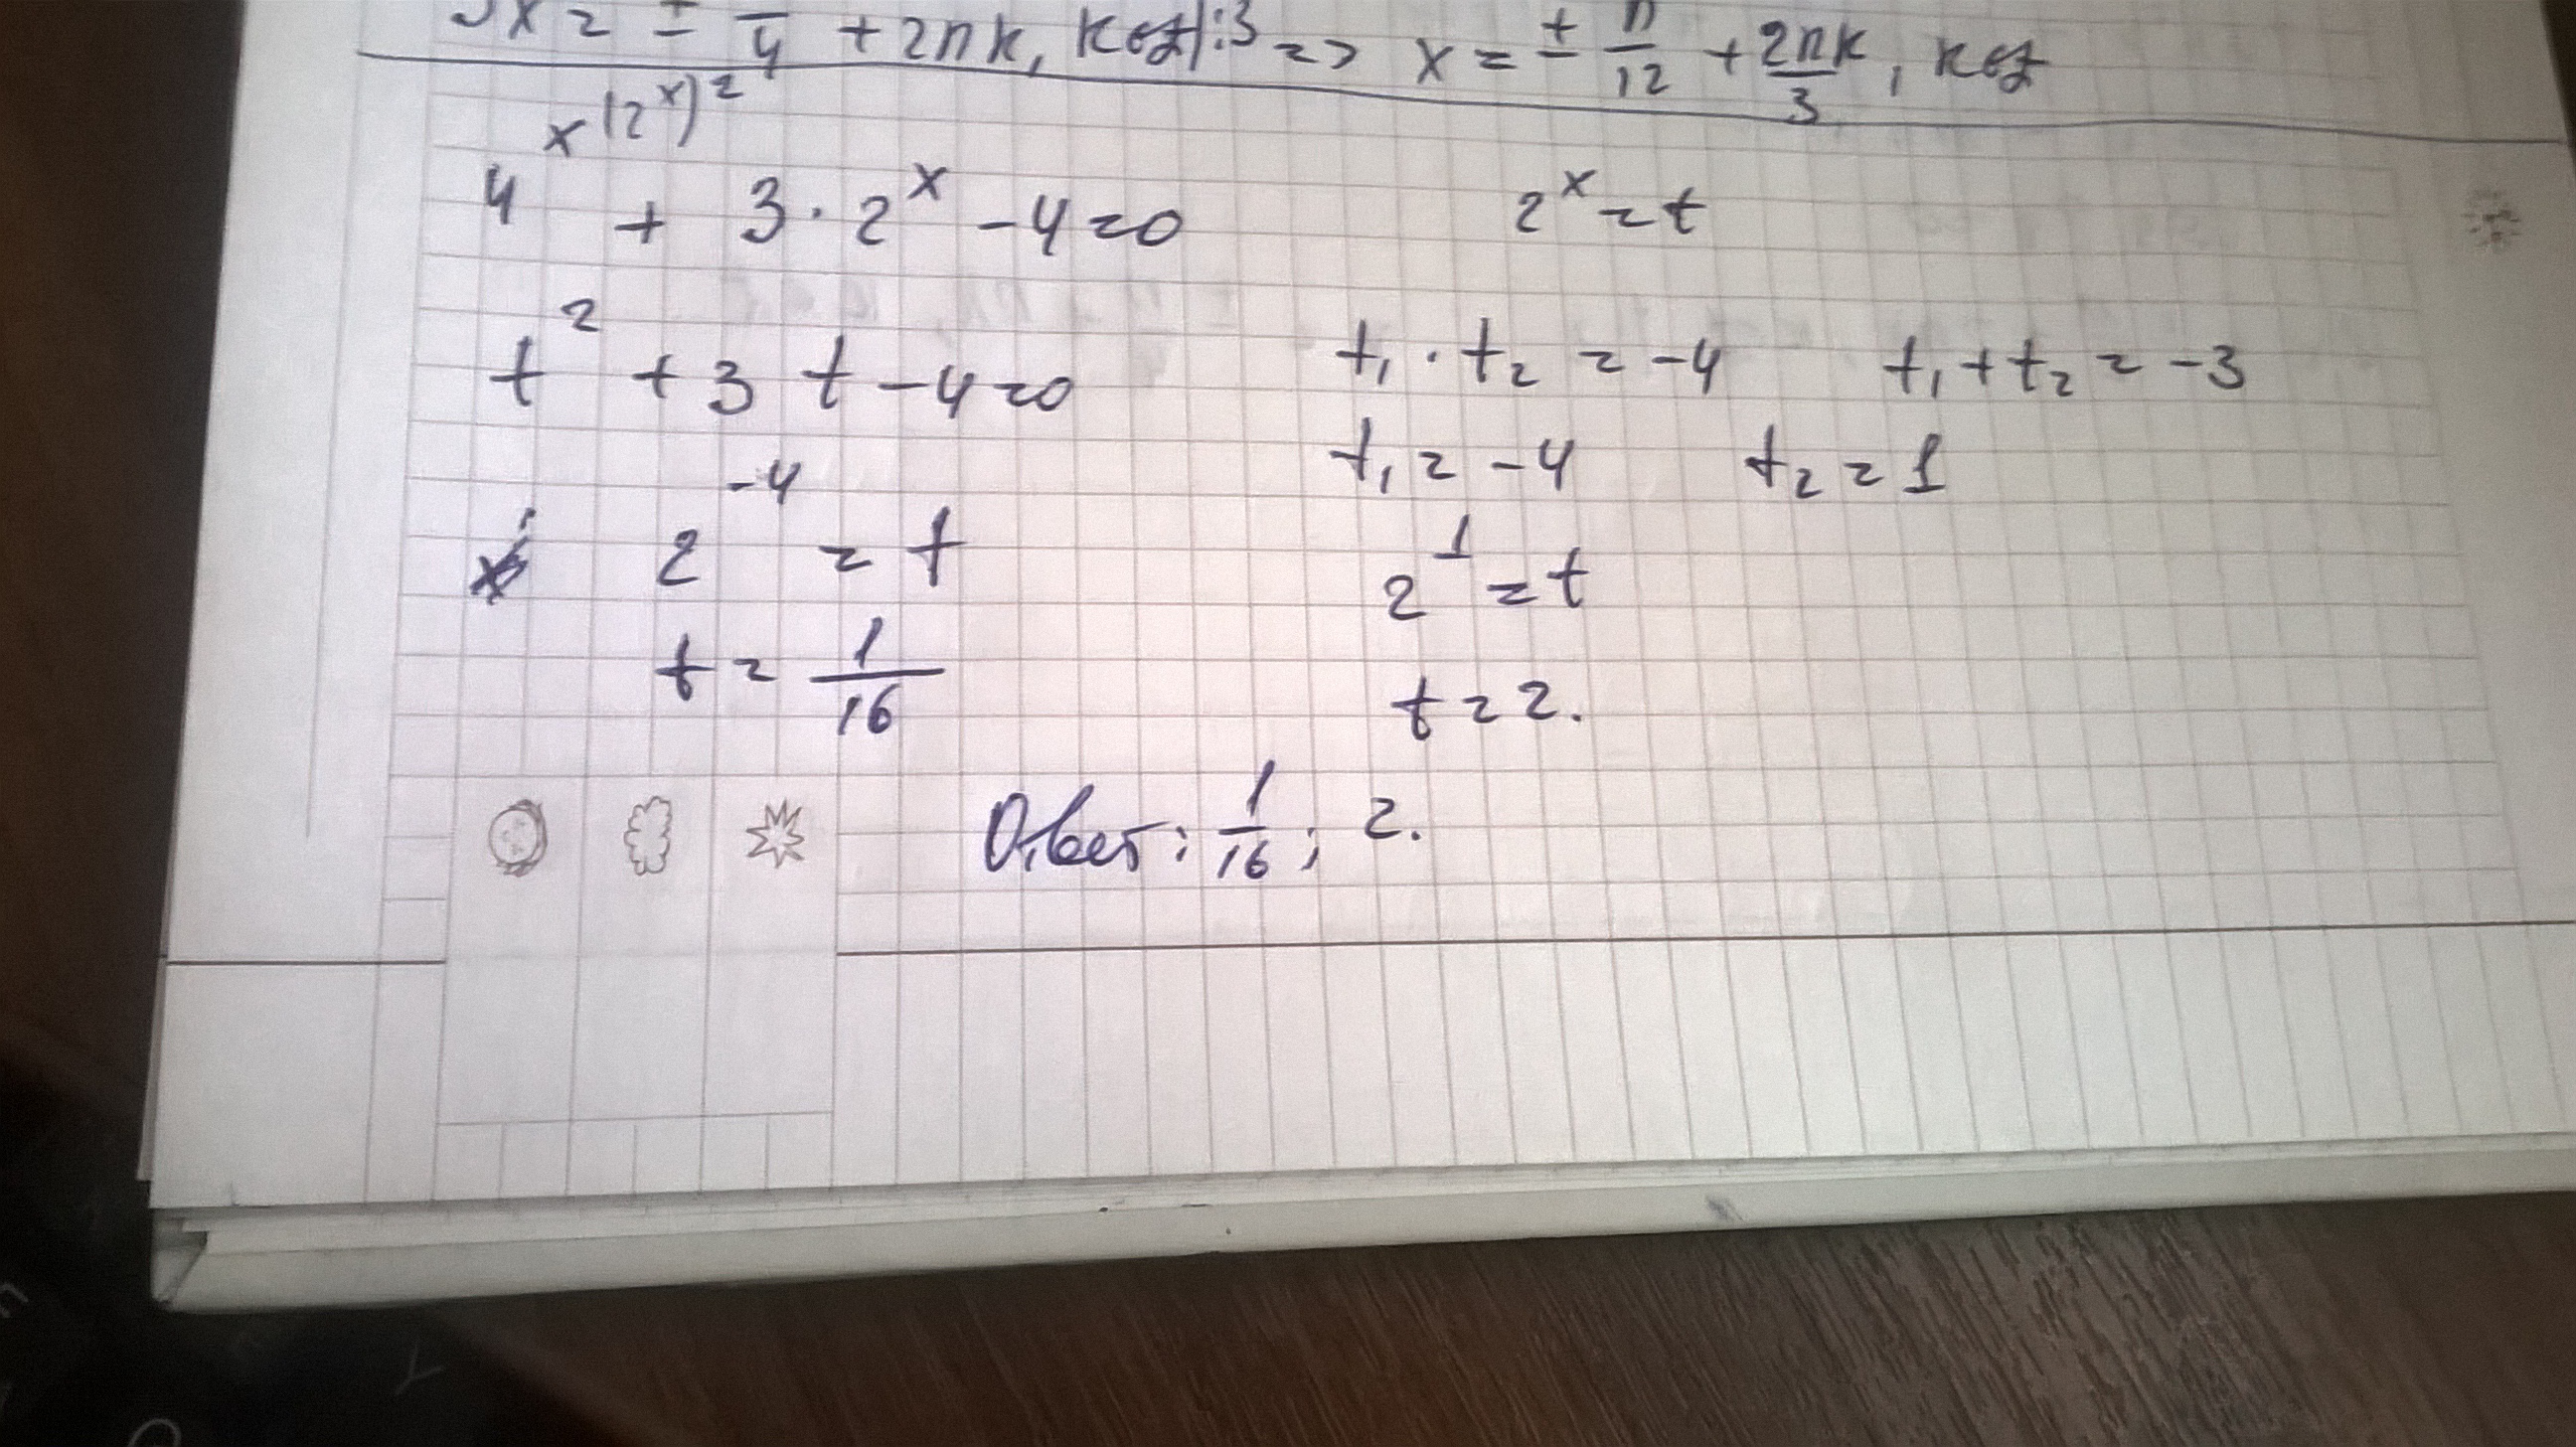 3x = ± π/4 + 2πk, k∈Z |:3 => x = ± π/12 + 2πk/3, k∈Z
(2^x)^2
4^x + 3·2^x - 4 = 0 2^x = t
t^2 + 3t - 4 = 0 t₁·t₂ = -4 t₁+t₂ = -3
t₁ = -4 t₂ = 1
2^-4 = t 2^1 = t
t = 1/16 t = 2.
Ответ: 1/16; 2.